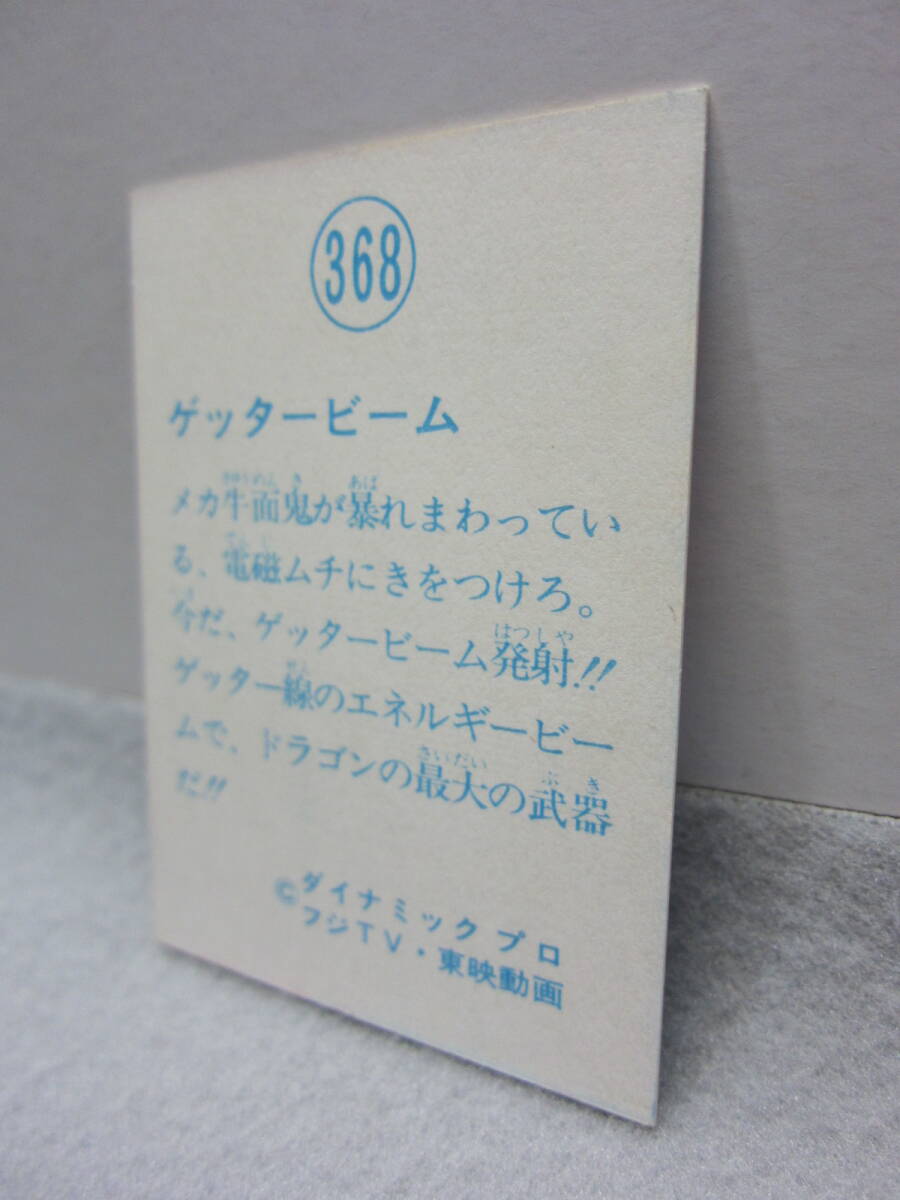 368
ゲッタービーム
メカ牛面鬼が暴れまわってい
る、電磁ムチにきをつけろ。
今だ、ゲッタービーム発射!!
ゲッター線のエネルギービー
ムで、ドラゴンの最大の武器
だ!!
©ダイナミックプロ
フジTV・東映動画